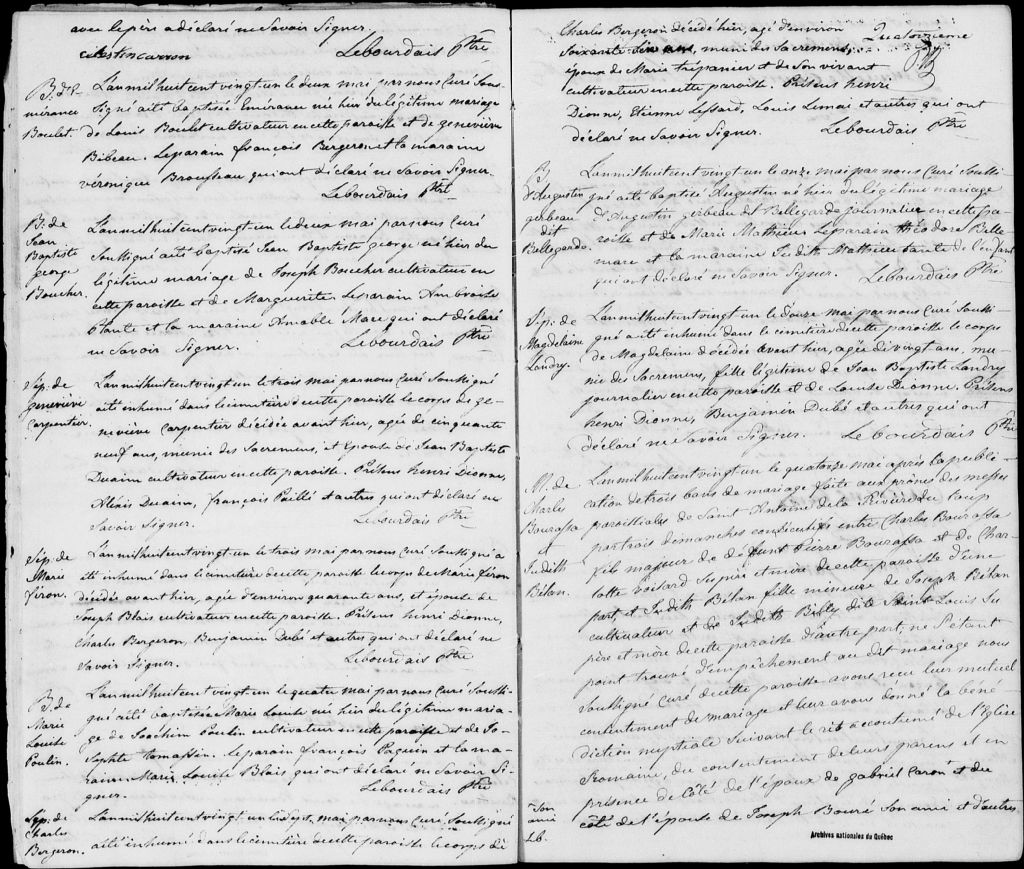 avec lepère a déclaré ne Savoir Signer.
celestin carron Lebourdais Ptre
B: d'E-
mérance
Boulet
L'an mil huit cent vingt un le deux mai par nous Curé Sous-
Signé a été baptisée Emérance née hier du légitime mariage
de Louis Boulet cultivateur en cette paroisse et de geneviève
Bibeau. Le parain françois Bergeron et la maraine
véronique Brousseau qui ont déclaré ne Savoir Signer.
Lebourdais Ptre
B: de
Jean
Baptiste
george
Boucher.
L'an mil huit cent vingt un le deux mai par nous Curé
Soussigné a été baptisé Jean Baptiste george né hier du
légitime mariage de Joseph Boucher cultivateur en
cette paroisse et de Marguerite Le parain Ambroise
Plante et la maraine Amable Mace qui ont déclaré
ne Savoir Signer. Lebourdais Ptre
Sép: de
geneviève
Carpentier.
L'an mil huit cent vingt un le trois mai par nous Curé Soussigné
a été inhumé dans le cimetière de cette paroisse le corps de ge-
neviève Carpentier décédée avant hier, agée de cinquante
neuf ans, munie des Sacremens, et Epouse de Jean Baptiste
Duaim cultivateur en cette paroisse. Présens henri Dionne,
Alexis Duaim, françois Paillé et autres qui ont déclaré ne
Savoir Signer. Lebourdais Ptre
Sép: de
Marie
firon.
L'an mil huit cent vingt un le trois mai par nous Curé Soussigné a
été inhumé dans le cimetière de cette paroisse le corps de Marie firon
décédée avant hier, agée d'environ quarante ans, et épouse de
Joseph Blais cultivateur en cette paroisse. Présens henri Dionne,
Charles Bergeron, Benjamin Dubé et autres qui ont déclaré ne
Savoir Signer. Lebourdais Ptre
B: de
Marie
Louise
Poulin.
L'an mil huit cent vingt un le quatre mai par nous Curé Soussi-
gné a été baptisée Marie Louise née hier du légitime maria-
ge de Joachim Poulin cultivateur en cette paroisse et de Jo-
sephte Tomassin. Le parain françois Paquin et la ma-
raine Marie Louise Blais qui ont déclaré ne Savoir Si-
gner. Lebourdais Ptre
Sép: de
Charles
Bergeron.
L'an mil huit cent vingt un le sept, mai par nous Curé Soussigné
a été inhumé dans le cimetière de cette paroisse le corps de
Charles Bergeron décédé hier, agé d'environ
Soixante ans, muni des Sacremens,
époux de Marie trépanier et de Son vivant
cultivateur en cette paroisse. Présens henri
Dionne, Etienne Lessard, Louis Lemai et autres qui ont
déclaré ne Savoir Signer. Lebourdais Ptre
Quatorzieme
B
d'Augustin
gerbeau
dit
Bellegarde
L'an mil huit cent vingt un le onze mai par nous Curé Soussi-
gné a été baptisé Augustin né hier du légitime mariage
d'Augustin gerbeau dit Bellegarde journalier en cette pa-
roisse et de Marie Mathieu Le parain théodore Belle-
mare et la maraine Judith Mathieu tante de l'enfant
qui ont déclaré ne Savoir Signer. Lebourdais Ptre
Sép: de
Magdelaine
Landry.
L'an mil huit cent vingt un le douze mai par nous Curé Soussi-
gné a été inhumé dans le cimetière de cette paroisse le corps
de Magdelaine décédée avant hier, agée de vingt ans, mu-
nie des Sacremens, fille légitime de Jean Baptiste Landry
journalier en cette paroisse et de Louise Dionne. Présens
henri Dionne, Benjamin Dubé et autres qui ont
déclaré ne Savoir Signer. Lebourdais Ptre
M. de
Charles
Bourassa
et
Judith
Bélan.
L'an mil huit cent vingt un le quatorze mai après la publi-
cation de trois bans de mariage faite aux prônes des messes
paroissiales de Saint Antoine de la Rivière du loup
par trois dimanches consécutifs entre Charles Bourassa
fils majeur de defunt Pierre Bourassa et de Char-
lotte voisard Ses père et mère de cette paroisse d'une
part, et Judith Bélan fille mineure de Joseph Bélan
cultivateur et de Judith Billy dite Saint Louis Ses
père et mère de cette paroisse d'autre part; ne S'étant
point trouvé d'empêchement au dit mariage nous
Soussigné curé de cette paroisse avons reçu leur mutuel
consentement de mariage et leur avons donné la béné-
diction nuptiale Suivant le rit accoutumé de l'Eglise
Romaine, du consentement de leurs parens et en
présence du Côté de l'époux de gabriel Caron et du
Son
ami
Lb.
côté de l'épouse de Joseph Bouré Son ami et d'autres
Archives nationales du Québec